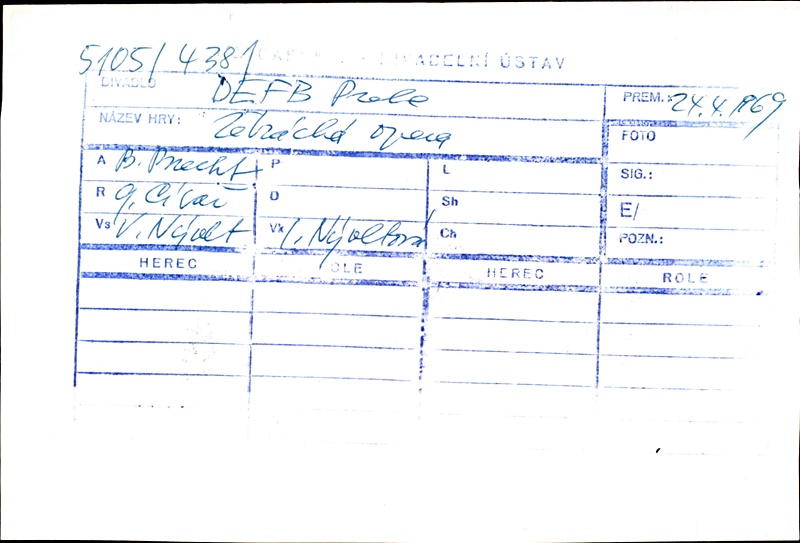 5105/4381
DIVADELNÍ ÚSTAV
DIVADLO DEFB Praha PREM.: 24.4.1969
NÁZEV HRY: Žebrácká opera FOTO
A B. Brecht P L SIG.:
R O Sh E/
Vs V. Nývlt Vk Nývltová Ch POZN.:
HEREC ROLE HEREC ROLE